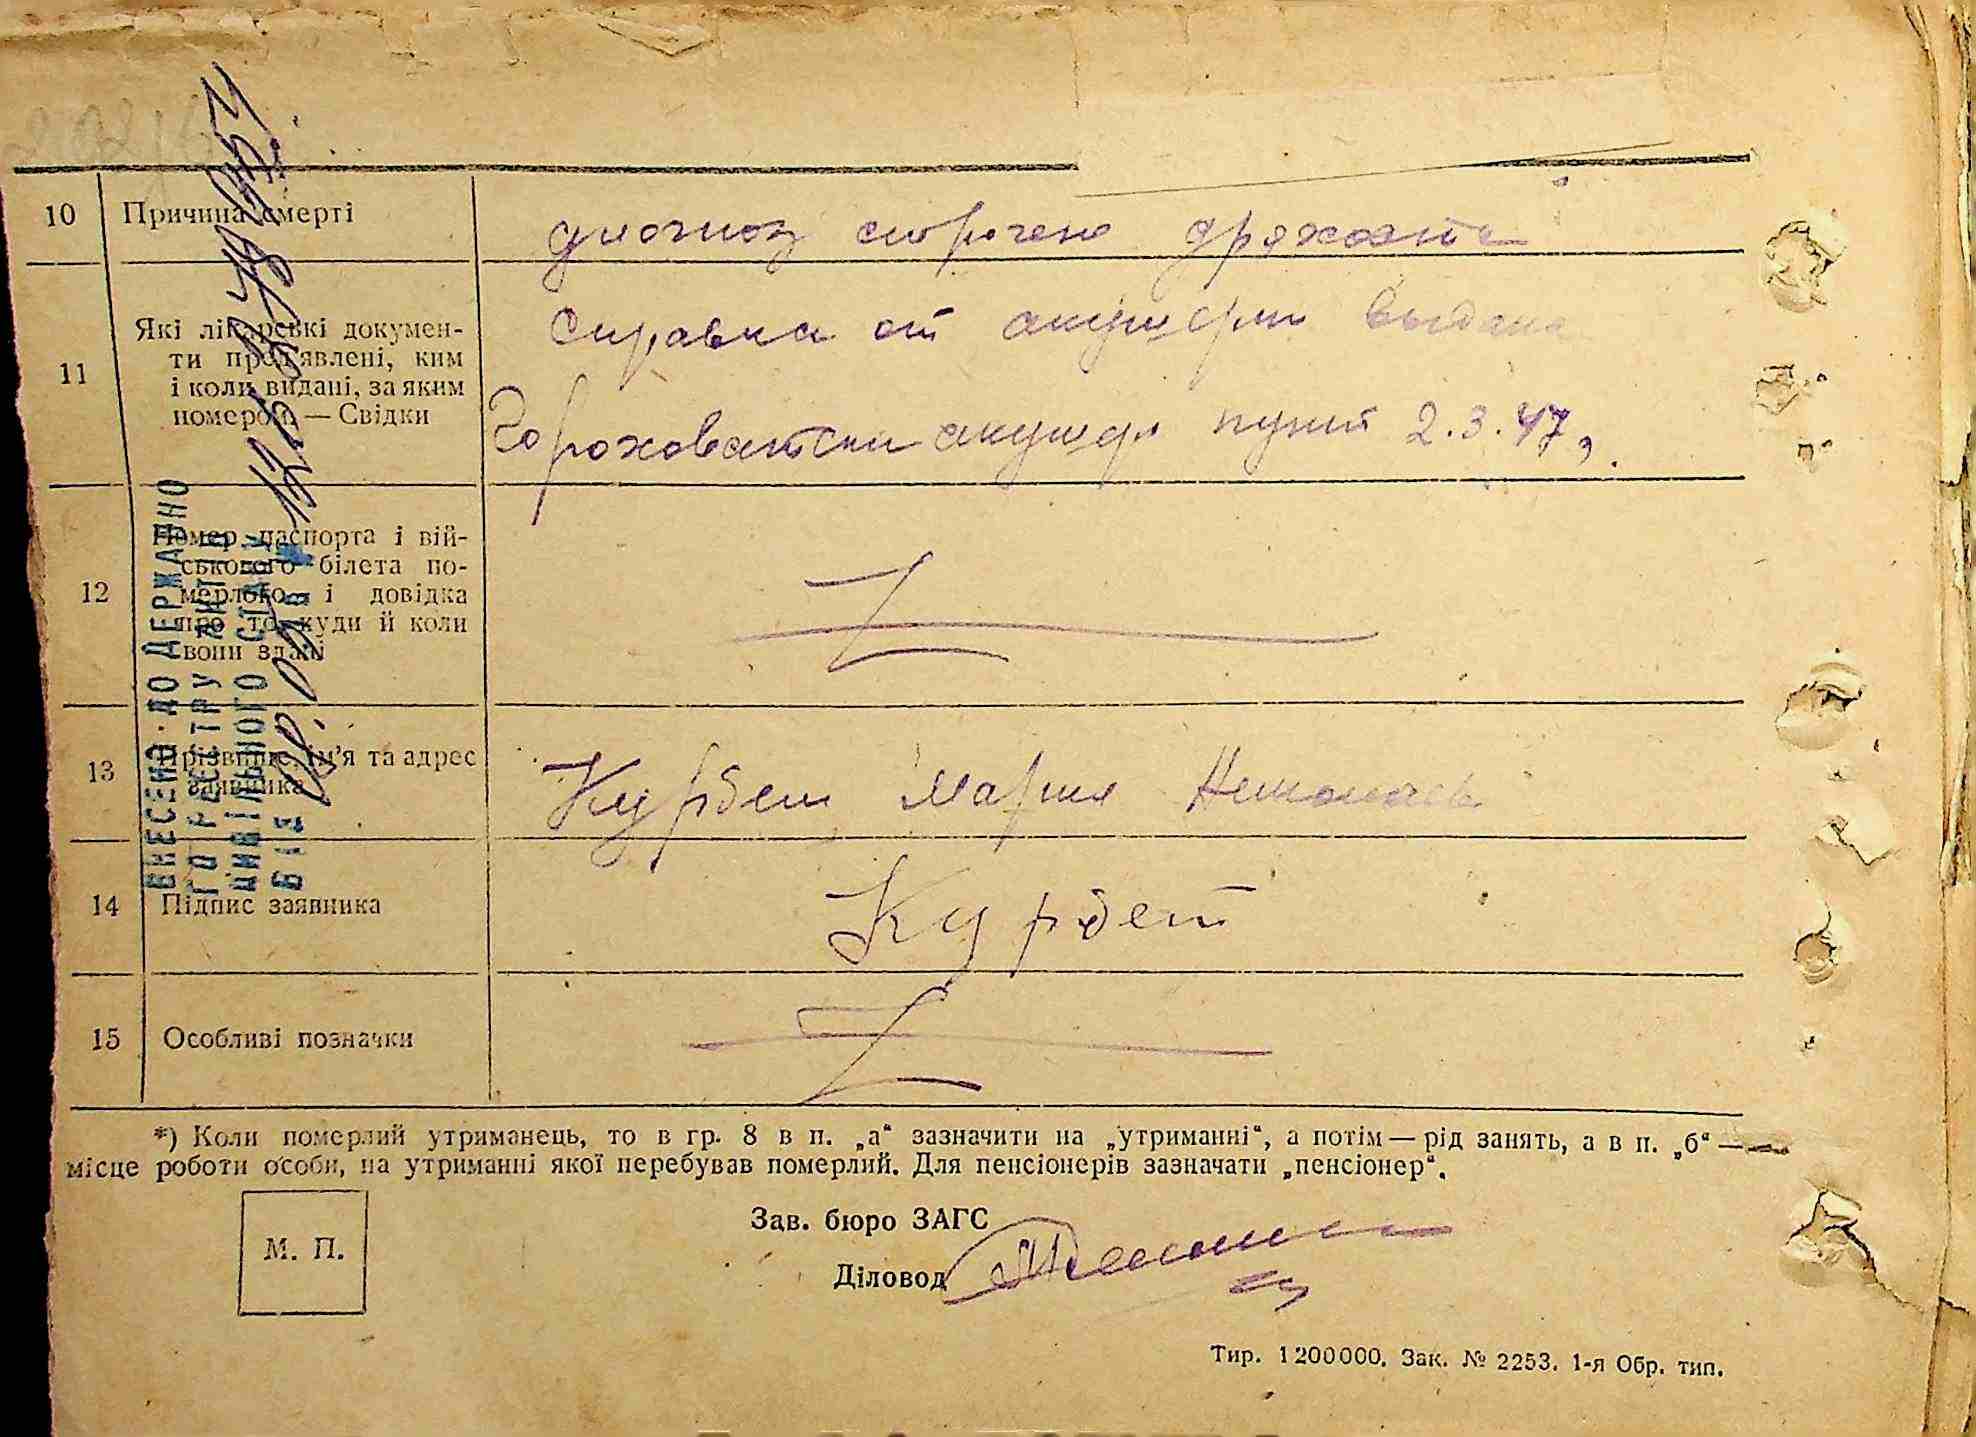 10 Причина смерті
диогноз старчена дряхость
11 Які лікарські докумен-
ти пред'явлені, ким
і коли видані, за яким
номером — Свідки
справка от акушерки выдана
Гороховатски акушер пункт 2.3.47
12 Номер паспорта і вій-
ськового білета по-
мерлого і довідка
про то, куди й коли
вони здані
13 Прізвище, ім'я та адрес
заявника
Курбет Мария
14 Підпис заявника
Курбет
15 Особливі позначки
*) Коли померлий утриманець, то в гр. 8 в п. „а“ зазначити на „утриманні“, а потім — рід занять, а в п. „б“ —
місце роботи особи, на утриманні якої перебував померлий. Для пенсіонерів зазначати „пенсіонер“.
М. П.
Зав. бюро ЗАГС
Діловод
Тир. 1200000. Зак. № 2253. 1-я Обр. тип.
ВНЕСЕНО ДО ДЕРЖАВНО
ГО РЕЄСТРУ АКТІВ
ЦИВІЛЬНОГО СТАНУ